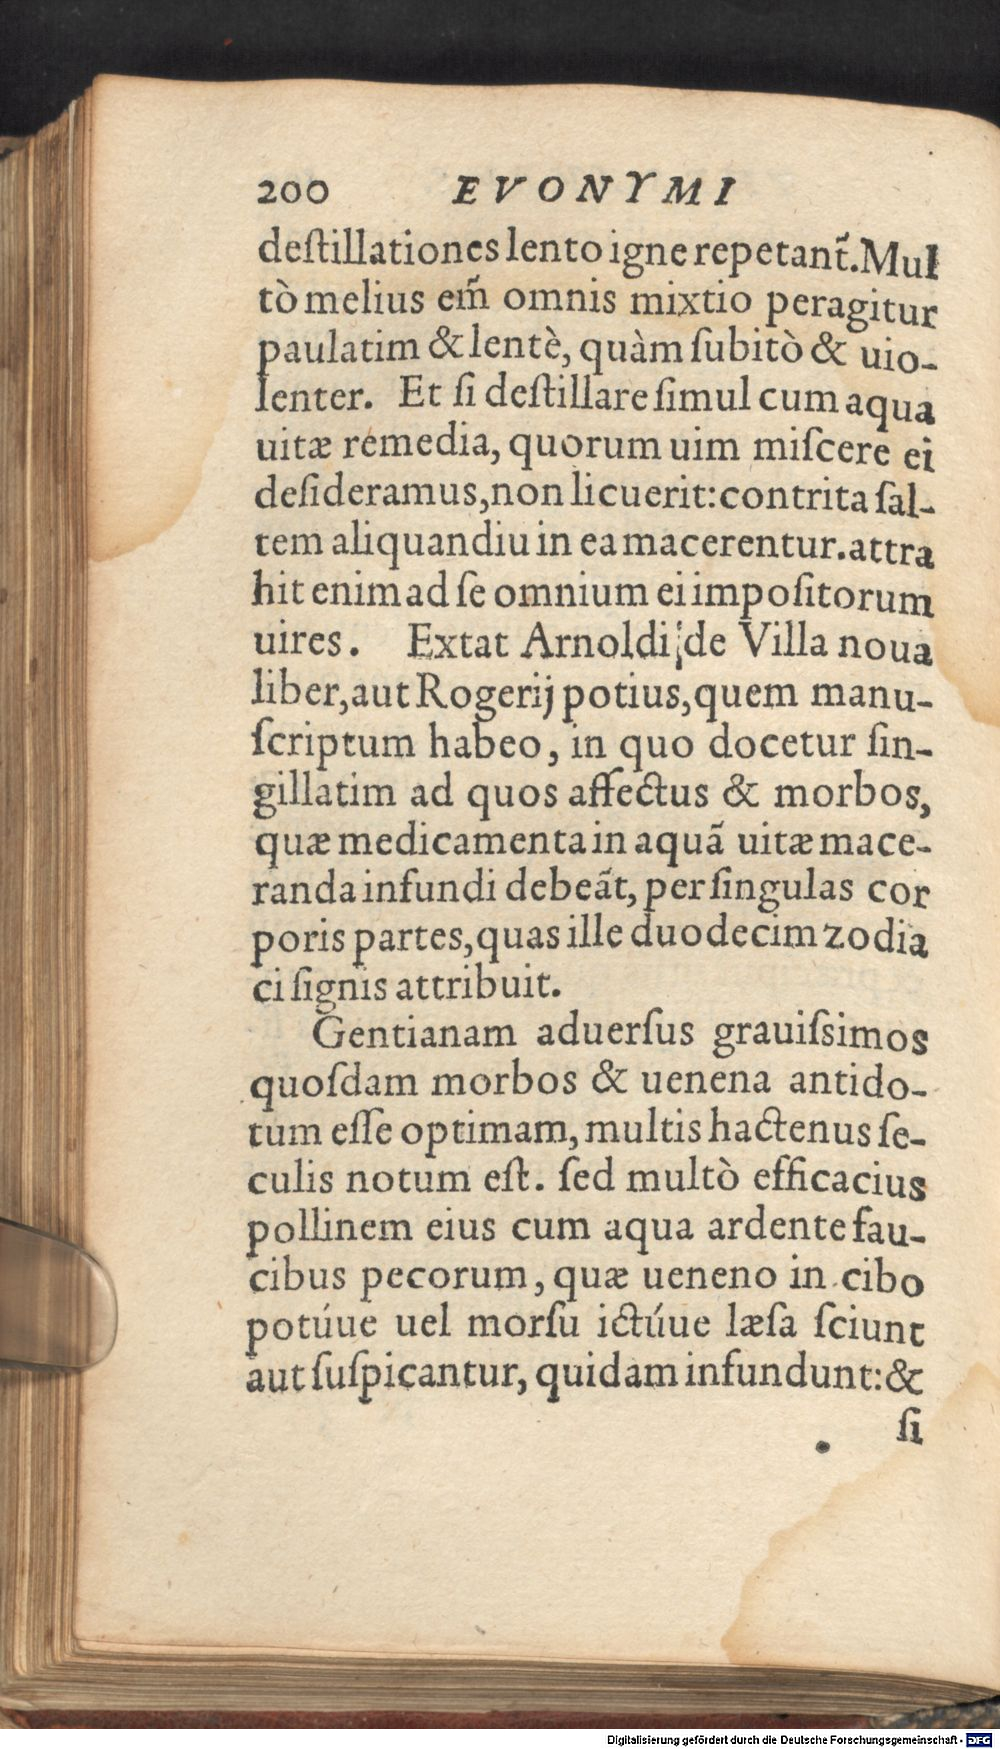 200 EVONYMI
deſtillationes lento igne repetant̃. Mul
tò melius em̃ omnis mixtio peragitur
paulatim & lentè, quàm ſubitò & uio-
lenter. Et ſi deſtillare ſimul cum aqua
uitæ remedia, quorum uim miſcere ei
deſideramus, non licuerit: contrita ſal-
tem aliquandiu in ea macerentur. attra
hit enim ad ſe omnium ei impoſitorum
uires. Extat Arnoldi de Villa noua
liber, aut Rogerij potius, quem manu-
ſcriptum habeo, in quo docetur ſin-
gillatim ad quos affectus & morbos,
quæ medicamenta in aquã uitæ mace-
randa infundi debeãt, per ſingulas cor
poris partes, quas ille duodecim zodia
ci ſignis attribuit.
Gentianam aduerſus grauiſsimos
quoſdam morbos & uenena antido-
tum eſſe optimam, multis hactenus ſe-
culis notum eſt. ſed multò efficacius
pollinem eius cum aqua ardente fau-
cibus pecorum, quæ ueneno in cibo
potúue uel morſu ictúue læſa ſciunt
aut ſuſpicantur, quidam infundunt: &
ſi
Digitalisierung gefördert durch die Deutsche Forschungsgemeinschaft - DFG